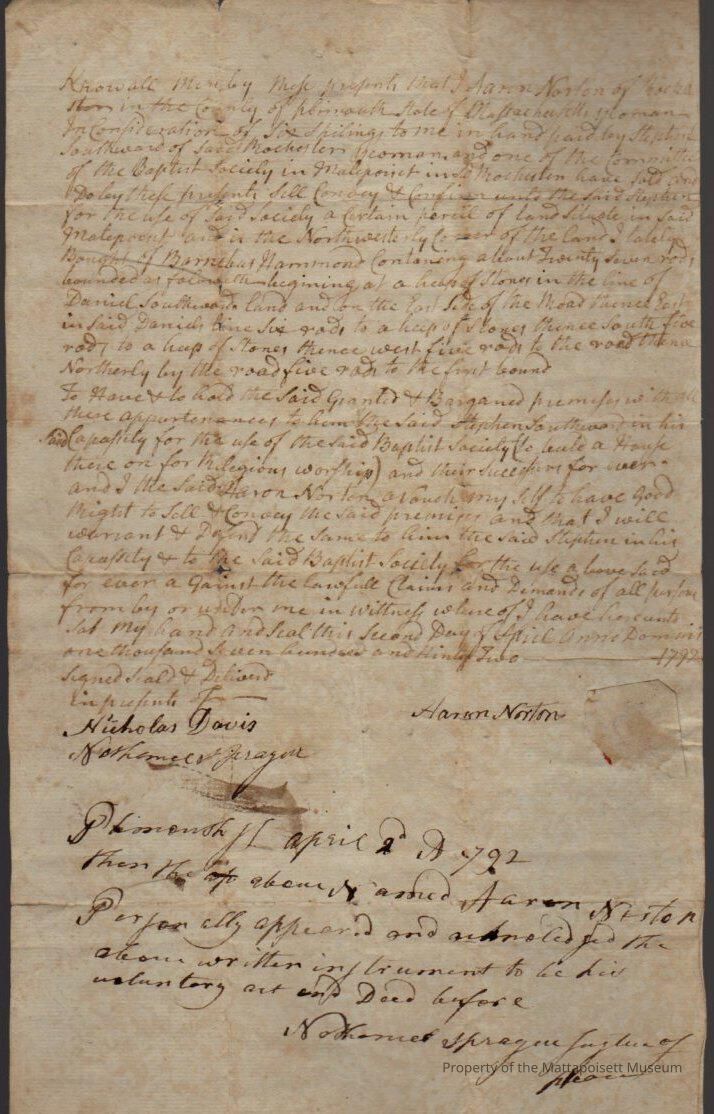 Know all men by these presents that I Aaron Norton of Rocha
ster in the County of plimouth State of Massachusetts yeoman
In Consideration of Six Shilings to me in hand paid by Stephen
Southward of Said Rochester yeoman and one of the Committee
of the Baptist Society in Matepoiset in Sd Rochester have Sold and
Do by these presents Sell Convey & Confirm unto the Said Stephen
for the use of Said Society a Certain percil of land Situate in Said
Matepoiset and is the Northwesterly Corner of the land I lately
Bought of Barnebas Hammond Contaning about Twenty Seven rods
bounded as followeth begining at a heap of Stones in the line of
Daniel Southwards land and on the East Side of the Road thence East
in Said Daniels line Six rods to a heep of Stones thence South five
rods to a heep of Stones thence west five rods to the road thence
Northerly by the road five rods to the first bound
To Have & to hold the Said Granted & Barganed premises with all
there appurtenances to him the said Stephen Southward in his
Said Capassity for the use of the said Baptist Society (to build a House
there on for Religious worship) and their successors for ever
and I the Said Aaron Norton avouch my Self to have Good
Right to Sell & Convey the said premises and that I will
warrant & Defend the Same to him the said Stephen in his
Capassity & to the Said Baptist Society for the use above said
for ever a Gainst the lawfull Claims and Demands of all persons
from by or under me in Wittness where of I have hereunto
Sat my hand and Seal this Second Day of April Anno Domini
one thousand Seven hundred and Ninty Two 1792
Signed Seald & Deliverd
in presents of
Nicholas Davis Aaron Norton
Nathaniel Sprague
Plimouth ss April 2d AD 1792
then the above Named Aaron Norton
Personally appeard and acknoledged the
above written instrument to be his
voluntary act and Deed before
Nathaniel Sprague Justice of
peace
Property of the Mattapoisett Museum